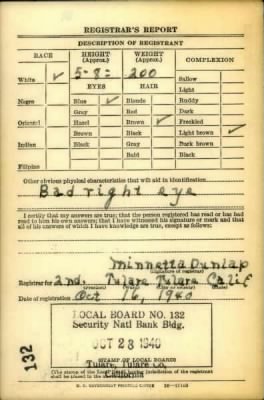 REGISTRAR'S REPORT
DESCRIPTION OF REGISTRANT
RACE HEIGHT (Approx.) WEIGHT (Approx.) COMPLEXION
White ✓ 5-8= 200 Sallow
EYES HAIR Light
Negro Blue ✓ Blonde Ruddy
Gray Red Dark
Oriental Hazel Brown ✓ Freckled
Brown Black Light brown ✓
Indian Black Gray Dark brown
Bald Black
Filipino
Other obvious physical characteristics that will aid in identification
Bad right eye
I certify that my answers are true; that the person registered has read or has had
read to him his own answers; that I have witnessed his signature or mark and that
all of his answers of which I have knowledge are true, except as follows:
Minnetta Dunlap
(Signature of registrar)
Registrar for 2nd. Tulare Tulare Calif
Date of registration Oct 16, 1940
LOCAL BOARD NO. 132
Security Natl Bank Bldg.
OCT 23 1940
STAMP OF LOCAL BOARD
Tulare, Tulare Co,
California
132
U. S. GOVERNMENT PRINTING OFFICE